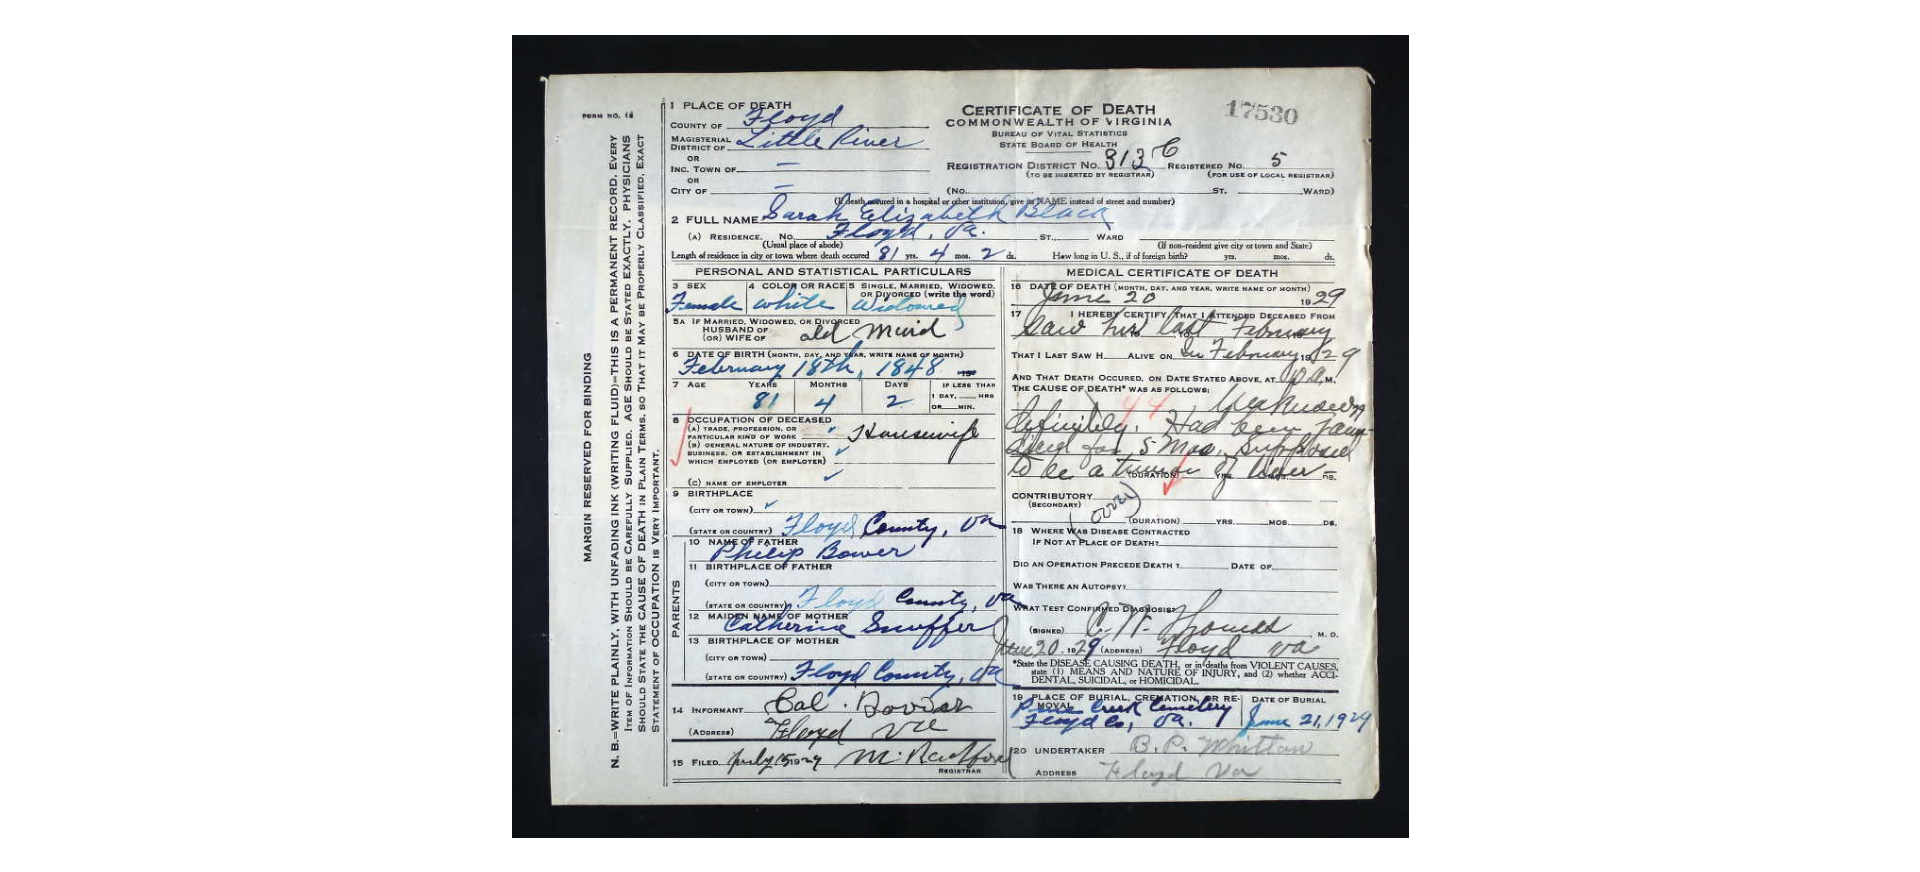 FORM NO. 12
MARGIN RESERVED FOR BINDING
N. B.—WRITE PLAINLY, WITH UNFADING INK (WRITING FLUID)—THIS IS A PERMANENT RECORD. EVERY
ITEM OF INFORMATION SHOULD BE CAREFULLY SUPPLIED. AGE SHOULD BE STATED EXACTLY. PHYSICIANS
SHOULD STATE THE CAUSE OF DEATH IN PLAIN TERMS, SO THAT IT MAY BE PROPERLY CLASSIFIED. EXACT
STATEMENT OF OCCUPATION IS VERY IMPORTANT.
1 PLACE OF DEATH
COUNTY OF Floyd
MAGISTERIAL DISTRICT OF Little River
OR
INC. TOWN OF —
OR
CITY OF —
CERTIFICATE OF DEATH
COMMONWEALTH OF VIRGINIA
BUREAU OF VITAL STATISTICS
STATE BOARD OF HEALTH
17530
REGISTRATION DISTRICT NO. 313 C REGISTERED NO. 5
(TO BE INSERTED BY REGISTRAR) (FOR USE OF LOCAL REGISTRAR)
(NO. ST. WARD)
(If death occured in a hospital or other institution, give its NAME instead of street and number)
2 FULL NAME Sarah Elizabeth Black
(A) RESIDENCE. NO. Floyd, Va. ST., WARD
(Usual place of abode) (If non-resident give city or town and State)
Length of residence in city or town where death occured 81 yrs. 4 mos. 2 ds. How long in U. S., if of foreign birth? yrs. mos. ds.
PERSONAL AND STATISTICAL PARTICULARS
3 SEX Female
4 COLOR OR RACE white
5 SINGLE, MARRIED, WIDOWED, OR DIVORCED (write the word) Widowed
5A IF MARRIED, WIDOWED, OR DIVORCED
HUSBAND OF
(OR) WIFE OF old
6 DATE OF BIRTH (MONTH, DAY, AND YEAR, WRITE NAME OF MONTH)
February 18th, 1848
7 AGE YEARS 81 MONTHS 4 DAYS 2 IF LESS THAN 1 DAY, HRS OR MIN.
8 OCCUPATION OF DECEASED
(A) TRADE, PROFESSION, OR PARTICULAR KIND OF WORK Housewife
(B) GENERAL NATURE OF INDUSTRY, BUSINESS, OR ESTABLISHMENT IN WHICH EMPLOYED (OR EMPLOYER)
(C) NAME OF EMPLOYER
9 BIRTHPLACE
(CITY OR TOWN)
(STATE OR COUNTRY) Floyd County, Va
PARENTS
10 NAME OF FATHER
Philip Bower
11 BIRTHPLACE OF FATHER
(CITY OR TOWN)
(STATE OR COUNTRY) Floyd County, Va
12 MAIDEN NAME OF MOTHER
Catherine Snuffer
13 BIRTHPLACE OF MOTHER
(CITY OR TOWN)
(STATE OR COUNTRY) Floyd County, Va
14 INFORMANT Cal.
(ADDRESS) Floyd Va
15 FILED July 15 1929 M. Radford
REGISTRAR
MEDICAL CERTIFICATE OF DEATH
16 DATE OF DEATH (MONTH, DAY, AND YEAR, WRITE NAME OF MONTH)
June 20 1929
17 I HEREBY CERTIFY, THAT I ATTENDED DECEASED FROM
Saw her last February
THAT I LAST SAW H ALIVE ON In February 1929
AND THAT DEATH OCCURED, ON DATE STATED ABOVE, AT M.
THE CAUSE OF DEATH* WAS AS FOLLOWS:
44
definitely. Had been jaun-
diced for 5 Mos, Supposed
to be a tumor of liver —
(DURATION) YRS. MOS. DS.
CONTRIBUTORY
(SECONDARY)
(DURATION) YRS. MOS. DS.
(over)
18 WHERE WAS DISEASE CONTRACTED
IF NOT AT PLACE OF DEATH?
DID AN OPERATION PRECEDE DEATH? DATE OF
WAS THERE AN AUTOPSY?
WHAT TEST CONFIRMED DIAGNOSIS?
(SIGNED) C. W. Thomas M. D.
June 20, 1929 (ADDRESS) Floyd Va
*State the DISEASE CAUSING DEATH, or in deaths from VIOLENT CAUSES,
state (1) MEANS AND NATURE OF INJURY, and (2) whether ACCI-
DENTAL, SUICIDAL, or HOMICIDAL.
19 PLACE OF BURIAL, CREMATION, OR RE-MOVAL DATE OF BURIAL
Pine Creek Cemetery
Floyd Co, Va. June 21, 1929
20 UNDERTAKER B. P. Whitton
ADDRESS Floyd Va